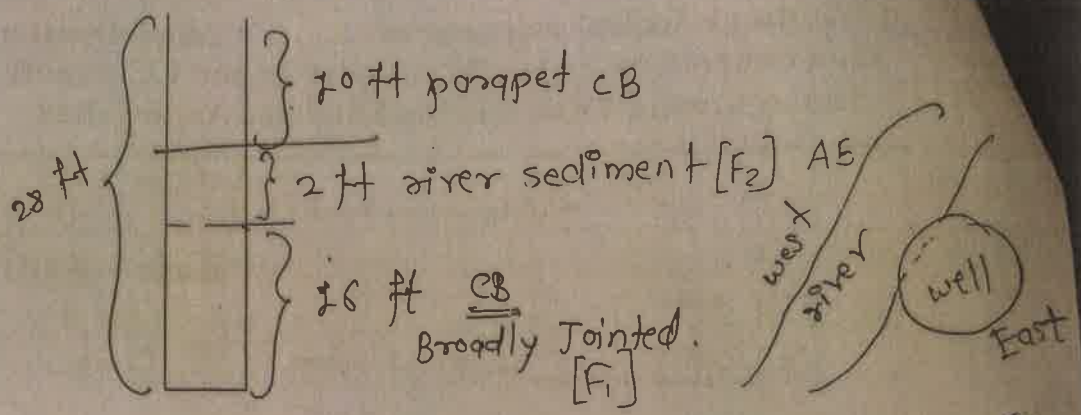 28 ft
10 ft parapet CB
2 ft river sediment [F2] AE
16 ft CB
Broadly Jointed.
[F1]
west
river
well
East